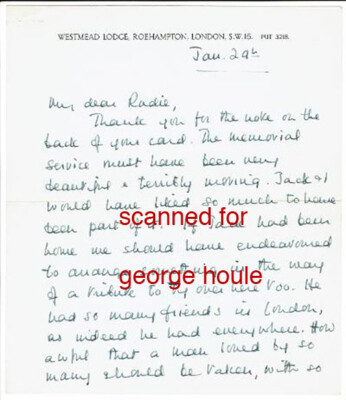 WESTMEAD LODGE, ROEHAMPTON, LONDON, S.W.15. PUT 3218.
Jan. 29th
My dear Radie,
Thank you for the note on the
back of your card. The memorial
service must have been very
beautiful & terribly moving. Jack & I
would have liked so much to have
been part of it. If Jack had been
scanned for
home we should have endeavoured
to arrange something in the way
of a tribute to Ty over here too. He
george houle
had so many friends in London,
as indeed he had everywhere. How
awful that a man loved by so
many should be taken, with so